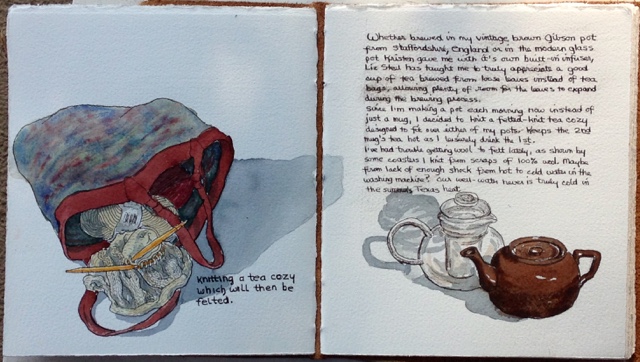 Knitting a tea cozy
which will then be
felted.
Whether brewed in my vintage, brown Gibson pot
from Staffordshire, England or in the modern glass
pot Kristen gave me with it's own built-in infuser,
has taught me to truly appreciate a good
cup of tea brewed from loose leaves instead of tea
bags, allowing plenty of room for the leaves to expand
during the brewing process.
Since I'm making a pot each morning now instead of
just a mug, I decided to knit a felted-knit tea cozy
designed to fit over either of my pots. Keeps the 2nd
mug's tea hot as I leisurely drink the 1st.
I've had trouble getting wool to felt lately, as shown by
some coasters I knit from scraps of 100% wool. Maybe
from lack of enough shock from hot to cold water in the
washing machine? Our well-water never is truly cold in
the Texas heat.